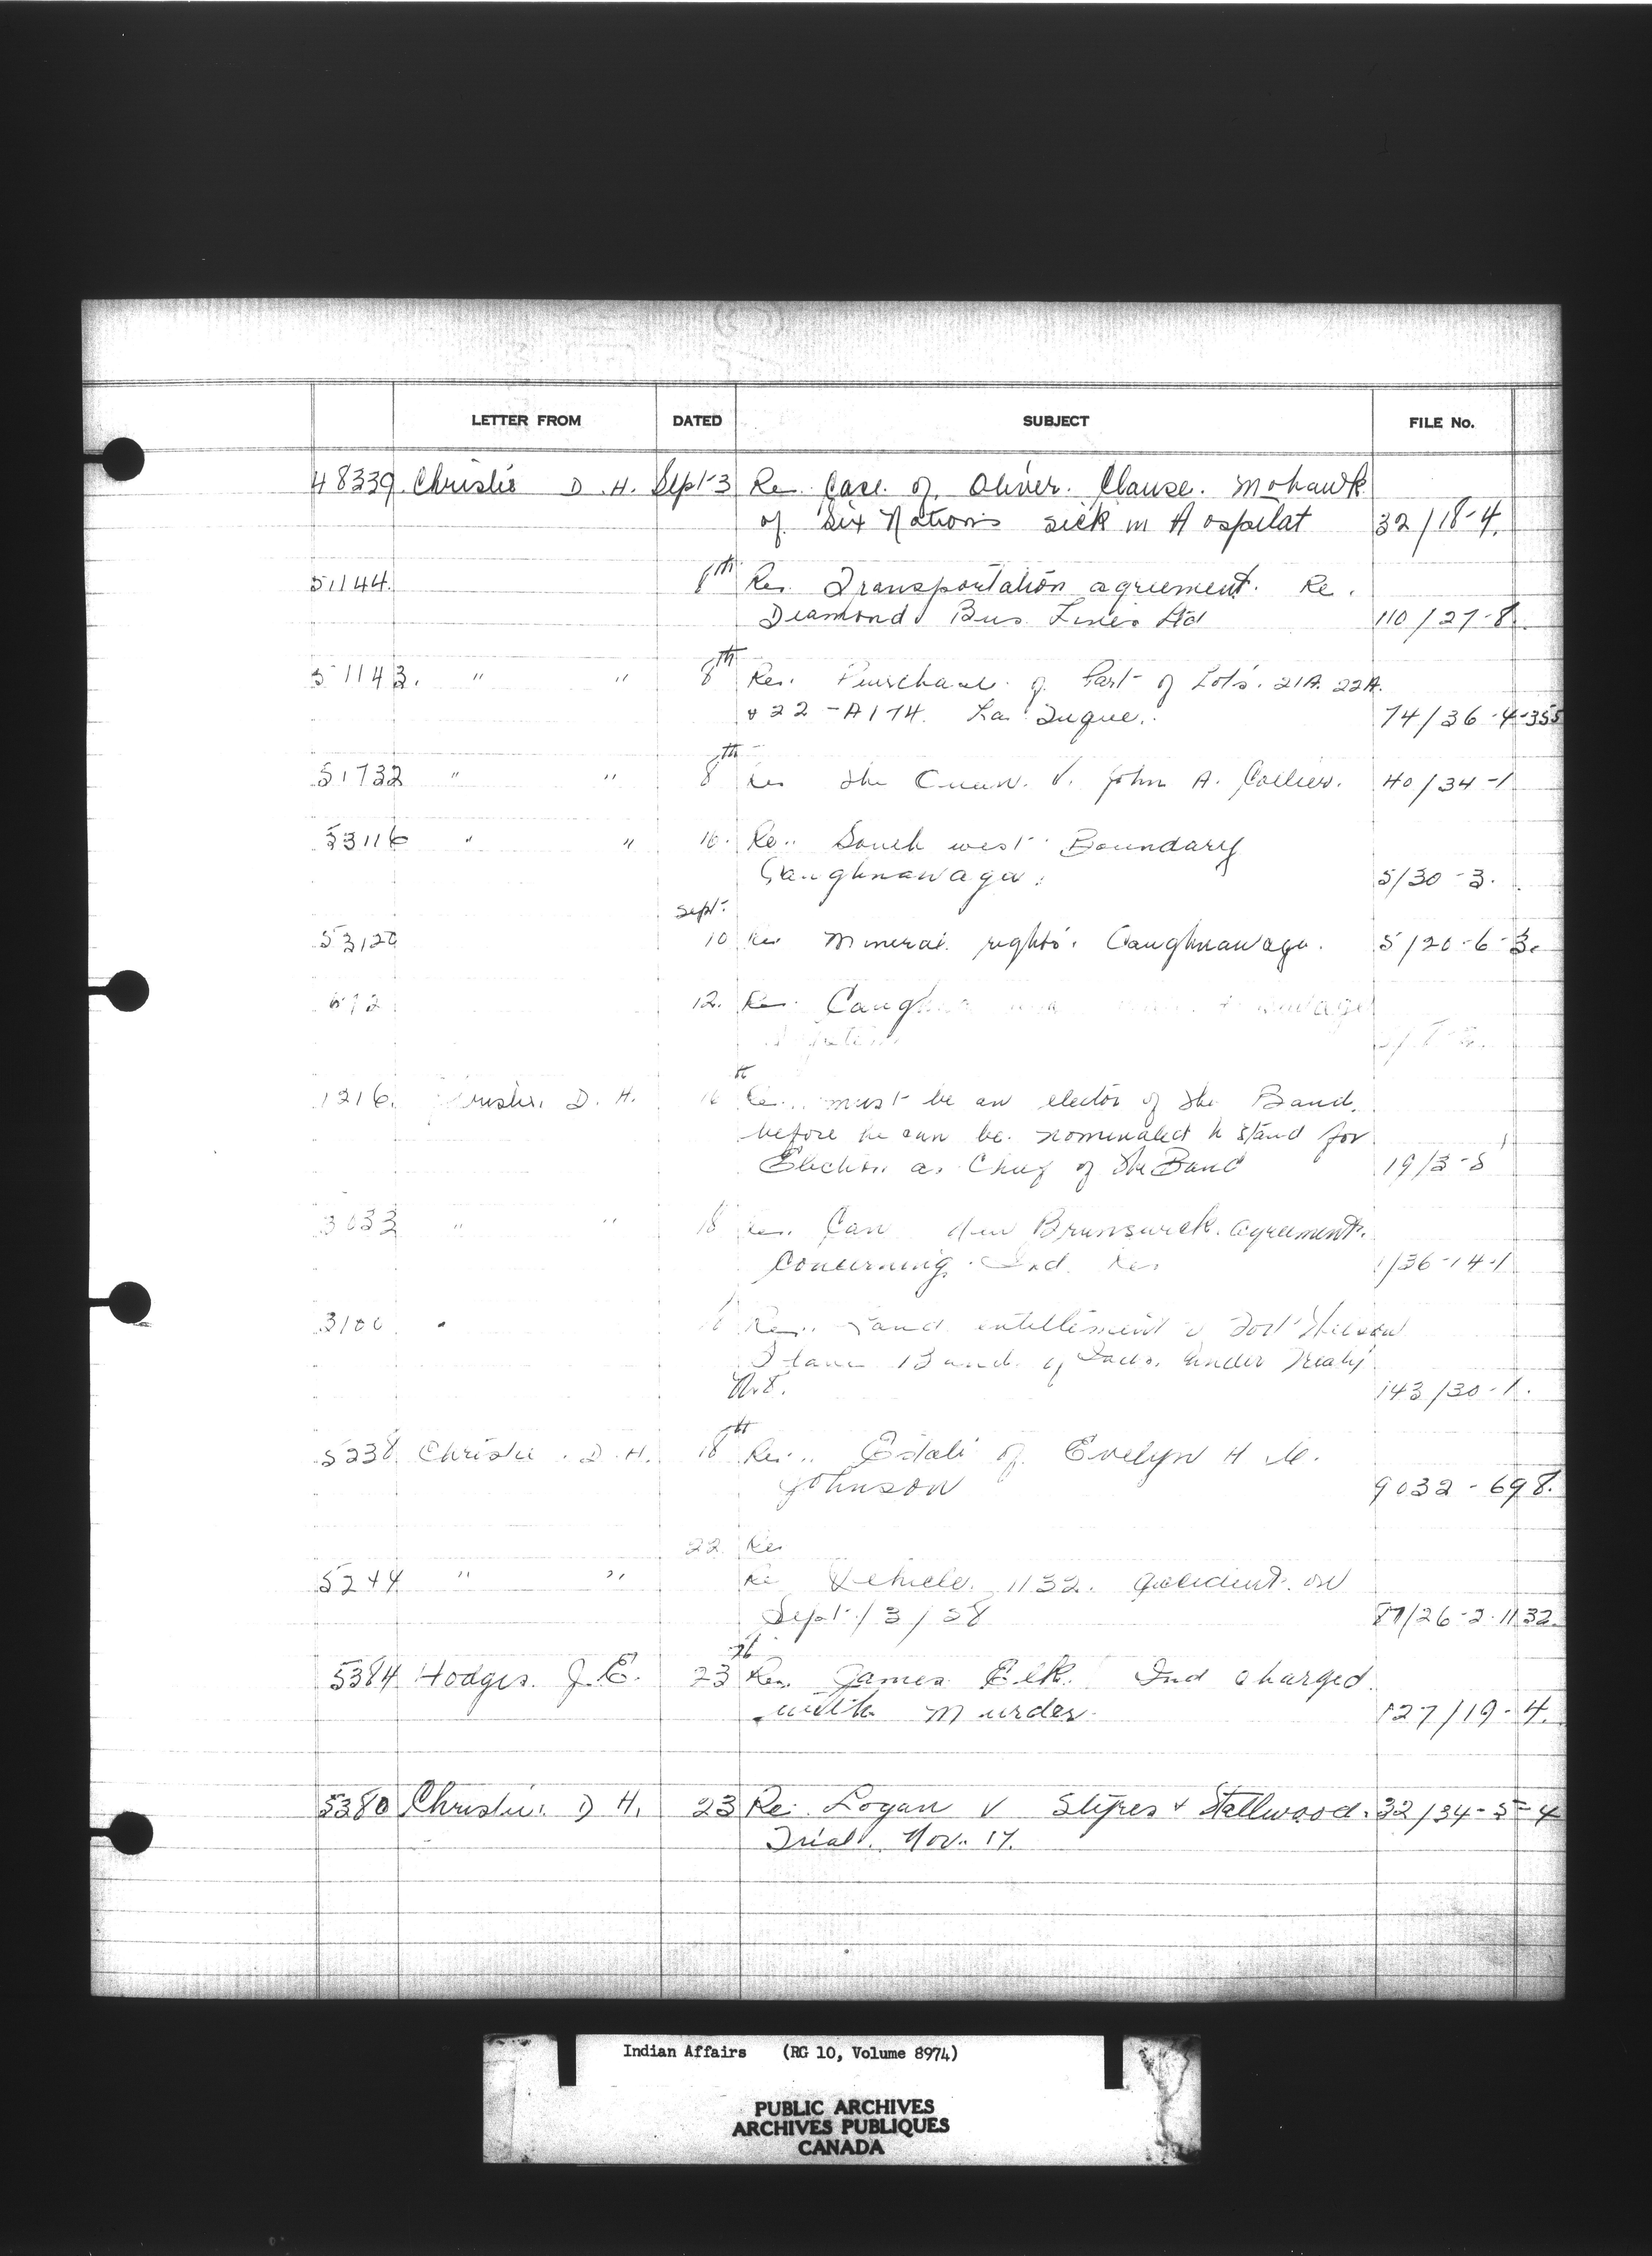 LETTER FROM DATED SUBJECT FILE No.
48339. Christie D. H. Sept 3 Re. Case of Oliver Clause. Mohawk
of Six Nations sick in Hospital 32/18-4.
51144. 8th Re. Transportation agreement. Re.
Diamond Bus Lines Ltd 110/27-8.
51143. " " 8th Re. Purchase of Part of Lots. 21A. 22A.
& 22-A174. La Tuque. 74/36-4-355
51732 " " 8th Re The Queen. V. John A. Collier. 40/34-1
53116 " " 10. Re. South west Boundary
Caughnawaga. 5/30-3.
Sept.
53120 10 Re Mineral rights. Caughnawaga. 5/20-6-3.
12. Re.
1216. Christie. D. H. 16th Re. must be an elector of the Band.
before he can be nominated to stand for
Election as Chief of the Band 19/3-5
3033 " " 18 Re. Can New Brunswick. agreement.
Concerning Ind. Res 1/36-14-1
3100 " Re. Land entitlement of Fort Nelson
Slave Band of Inds. under Treaty
No 8. 143/30-1.
5238 Christie. D. H. 18th Re. Estate of Evelyn H. C.
Johnson 9032-698.
22 Re
5244 " " Re Vehicle. 1132. accident. on
Sept/3/58 87/26-2-1132.
5384 Hodges. J. E. 23th Re. James Elk. Ind charged
with Murder. 127/19-4.
5380 Christie. D H. 23 Re. Logan v Styres & Stallwood. 32/34-5-4
Trial. Nov. 17.
Indian Affairs (RG 10, Volume 8974)
PUBLIC ARCHIVES
ARCHIVES PUBLIQUES
CANADA